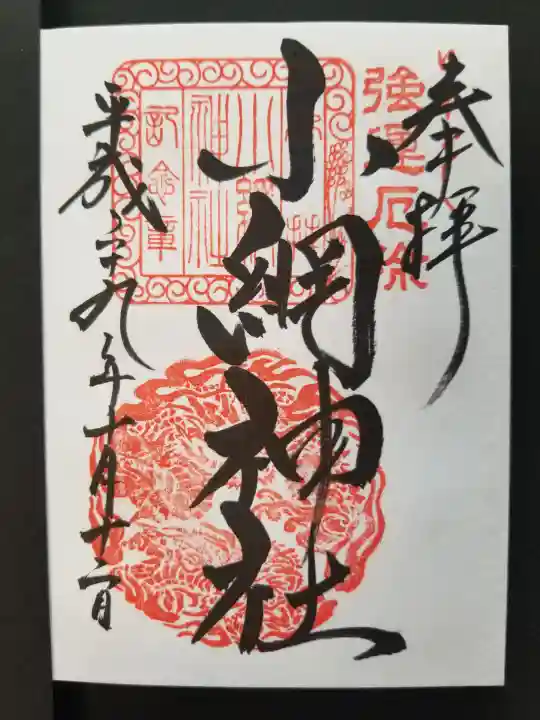 奉拝
強運厄除
小網神社
小網
神社
記念章
平成二十九年十一月十二日